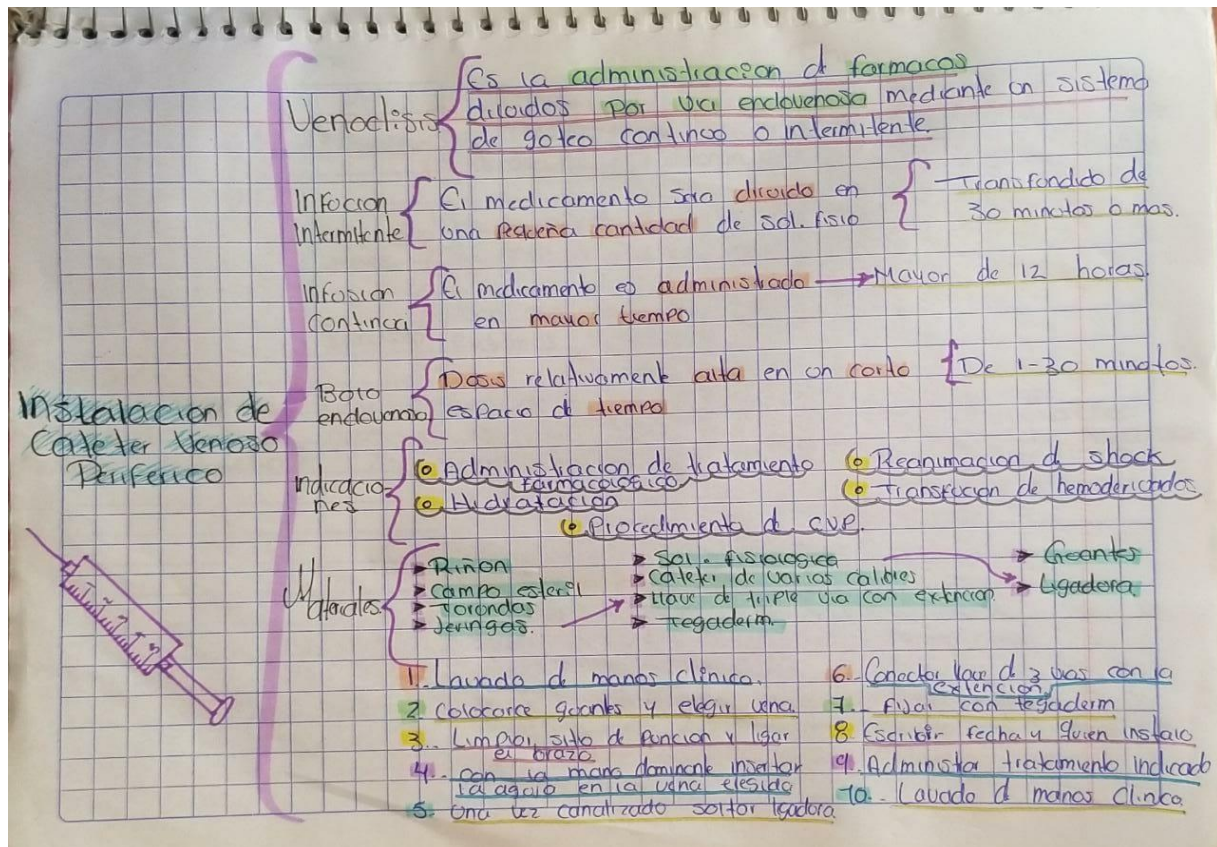 Instalacion de
Cateter Venoso
Periferico
Venoclisis
Es la administracion d farmacos
diluidos por via endovenosa mediante un sistema
de goteo continuo o intermitente
Infucion
intermitente
El medicamento sera diluido en
una Pequeña cantidad de sol. fisio
Transfundido de
30 minutos o mas.
Infusion
continua
El medicamento es administrado
en mayor tiempo
Mayor de 12 horas.
Bolo
endovenoso
Dosis relativamente alta en un corto
espacio d tiempo
De 1-30 minutos.
Indicacio-
nes
Administracion de tratamiento
farmacologico
Hidratación
Procedimiento d CVP.
Reanimacion d shock
Transfucion de hemoderivados
Materiales
Riñon
Campo esteril
Torundas
Jeringas.
Sol. fisiologica
Cateter de varios calibres
Llave de triple via con extencion
Tegaderm.
Guantes
Ligadora
1. Lavado d manos clinico.
2 Colocarce guantes y elegir vena.
3.. Limpiar sitio de puncion y ligar
el brazo.
4.- con la mano dominante insertar
la aguja en la vena elegida
5.- Una vez canalizado soltar ligadora.
6.- Conectar llave d 3 vias con la
extencion
7.- Fijar con tegaderm
8 Escribir fecha y quien instalo
9. Administar tratamiento indicado
10.- Lavado d manos clinico.